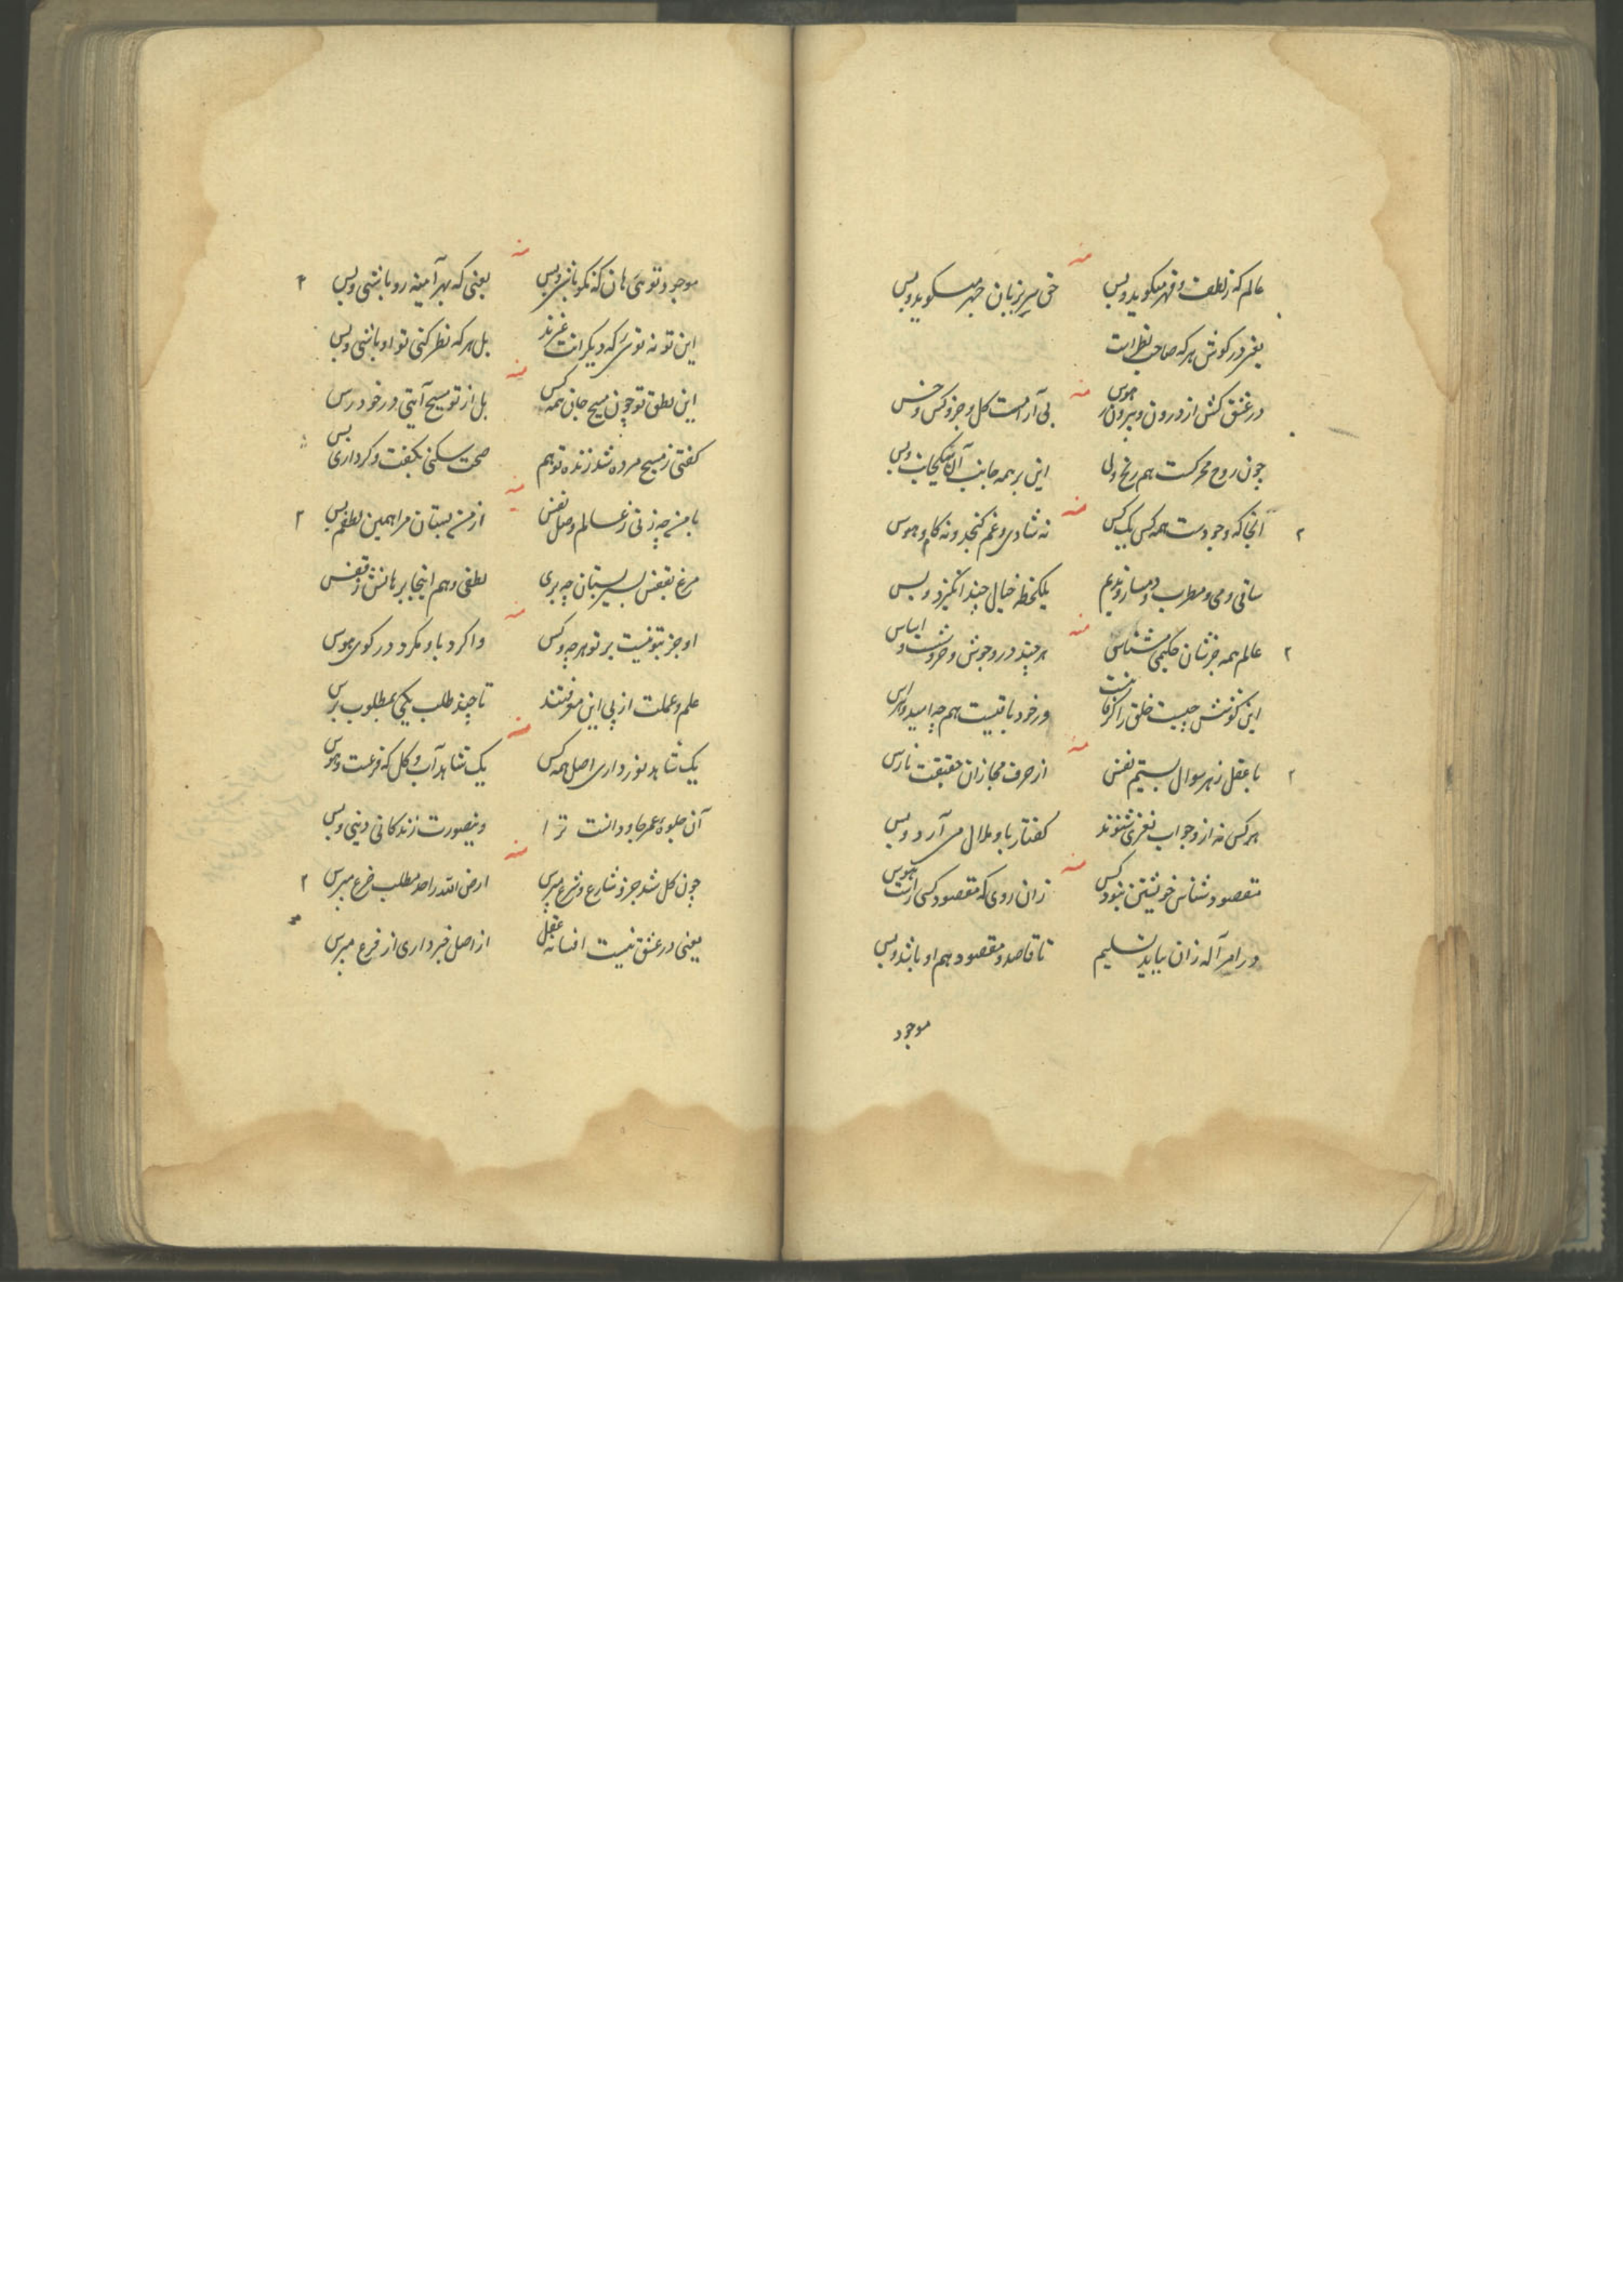 منه
عالم که ز لطف و قهر میکوید و بس حق سر بزبان جهر میکوید و بس
یعنی در کوش هر که صاحب نظر است
منه
در عشق کش از درون و بیرون هوس بی آرامست کل و جزو کس و خس
چون روح محرکست هم رنج ولی این بر همه جانب آن بیکجانب و بس
منه
آنجا که وجودست همه کس یک کس نه شادی و غم کنجد و نه کام و هوس
ساقی و می و مطرب و دمساز و ندیم یکلحظه خیال چند انکیزد و بس
منه
عالم همه جز شان حکیمی مشناس هر چند در و جوش و خروشست و اساس
این کوشش چیست خلق را کر فانیست ور خود باقیست هم چه امید و هراس
منه
با عقل ز هر سوال بستیم نفس از حرف مجاز آن حقیقت نارس
هر کس نه از و جواب نغزی شنوند کفتار باو ملال می آرد و بس
منه
مقصود شناس خویشتن نبود کس زان روی که مقصود کسی راست هوس
در امر آله زان بیاید تسلیم تا قاصد و مقصود هم او باشد و بس
موجود
منه
موجود توئی هان که نکو باشی و بس یعنی که بهر آینه رو باشی و بس
این تو نه توئی که دیکرانت غیرند بل هر که نظر کنی تو او باشی و بس
منه
این نطق تو چون مسیح جان همه کس بل از تو مسیح آیتی در خود رس
کفتی ز مسیح مرده شد زنده تو هم صحت سکنی بکفت و کرداری بس
منه
با من چه زنی ز عالم وصل نفس از من بستان مرا همین لطفم بس
مرغ بقفس بسیر بستان چه بری لطفی و هم اینجا برهانش ز قفس
منه
او جز بتو نیست بر تو هر چه و کس واکرد باو مکرد در کوی هوس
علم و عملت از پی این موقوفند تا چند طلب یکی بمطلوب برس
منه
یک شاهد نور داری اصل همه کس یک شاهد آب و کل که فرعست و هوس
آن جلوه عمر جاودانست ترا وینصورت زندکانی دینی و بس
منه
چون کل شد جزو شارع و شرع مپرس ارض الله را حد مطلب ضرع مپرس
یعنی در عشق نیست افسانه عقل از اصل خبر داری از فرع مپرس